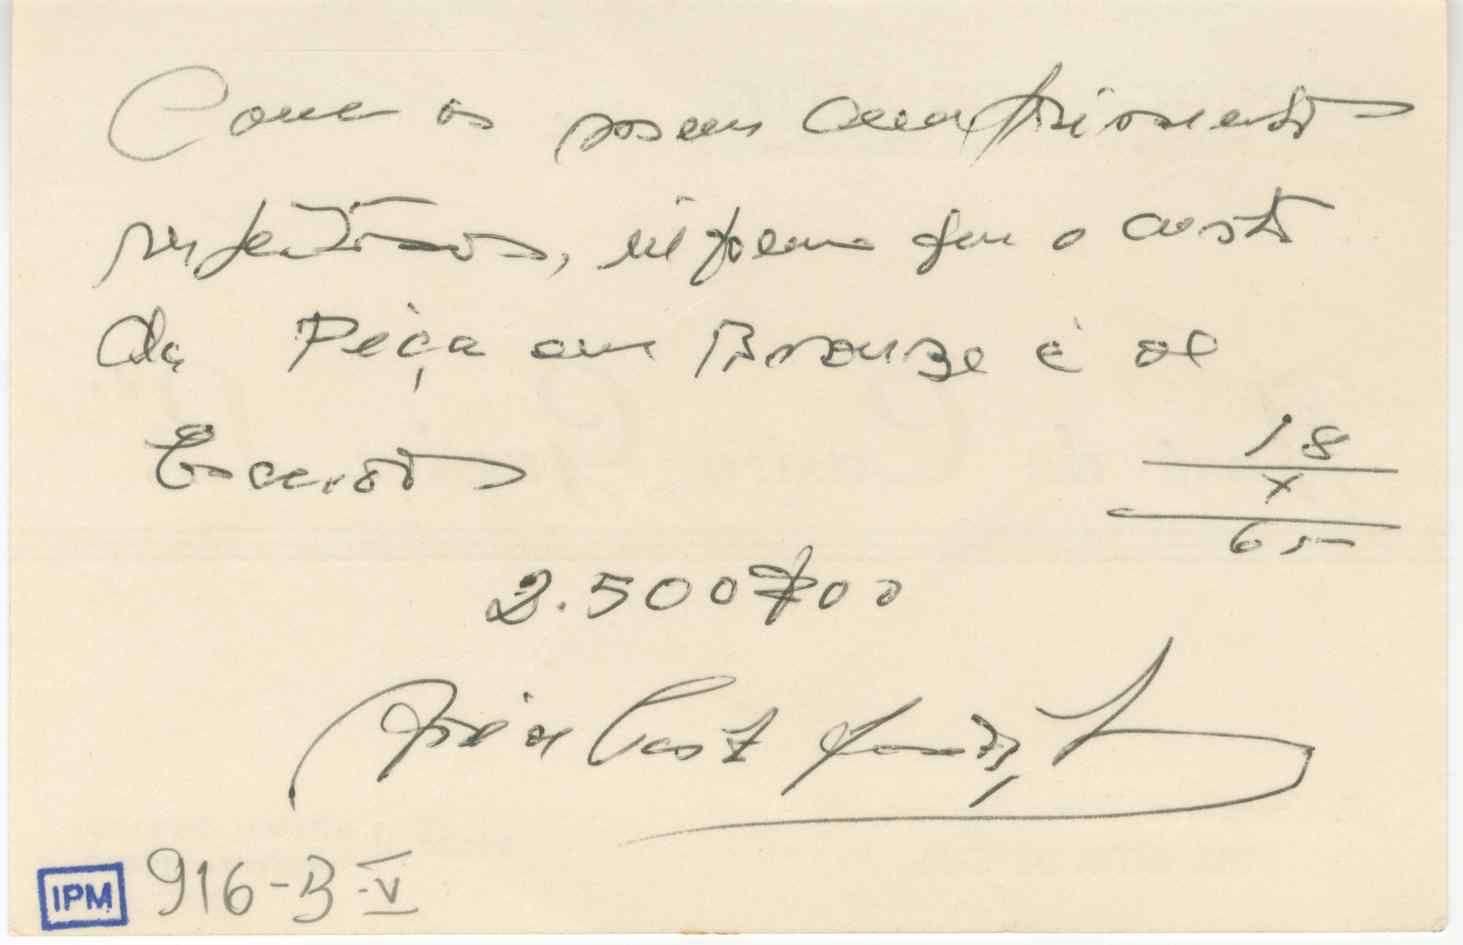 Com os meus cumprimentos
respeitosos, informo que o custo
da Peça em Bronze é de
Escudos
18
x
65
2.500$00
IPM 916-B-V